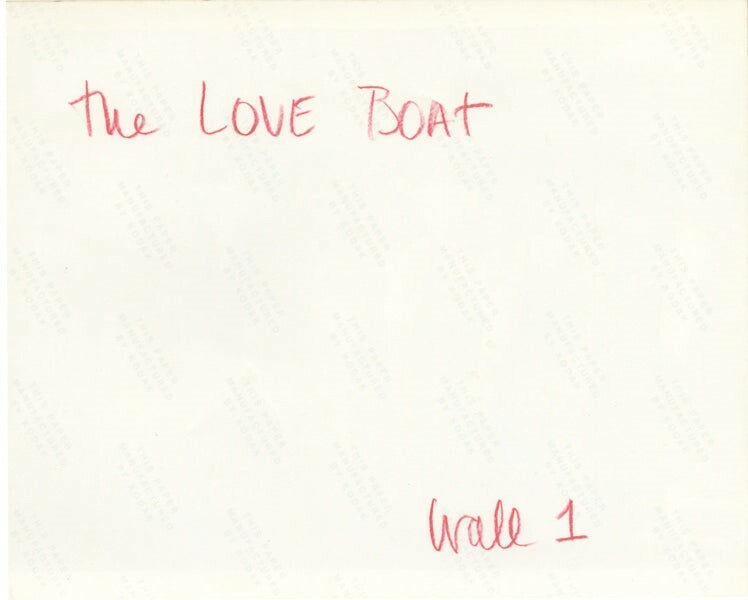 the LOVE BOAT
Wall 1
THIS PAPER
MANUFACTURED
BY KODAK